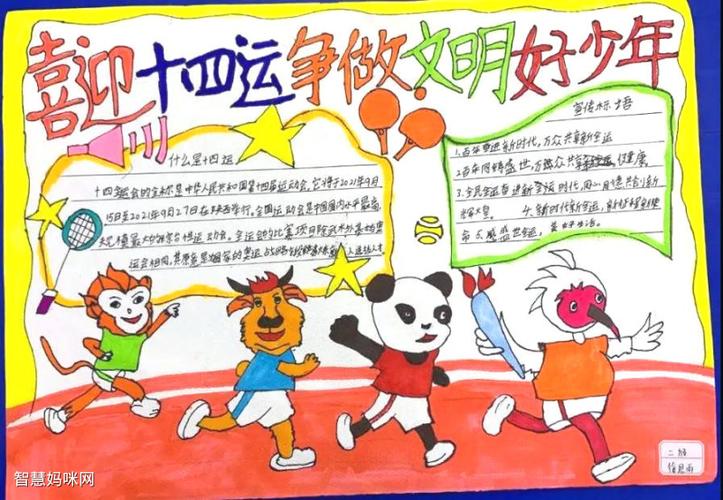 喜迎十四运争做文明好少年
什么是十四运
十四运会的全称是中华人民共和国第十四届运动会,它将于2021年9月
15日至2021年9月27日在陕西举行。全国运动会是中国国内水平最高
规模最大的综合性运动会。全运会的比赛项目除武术外基本与奥
运会相同,其原意是为国家的奥运战略
人选拔人才
宣传标语
1.百年奋进新时代,万众共享新全运
2.百年同铸盛世,万众共享 健康
3.全民全运奋进新时代,同心同德共创新
4.新时代新全运,新征程新使
命 5.盛世 运,美好生活。
二班
智慧妈咪网